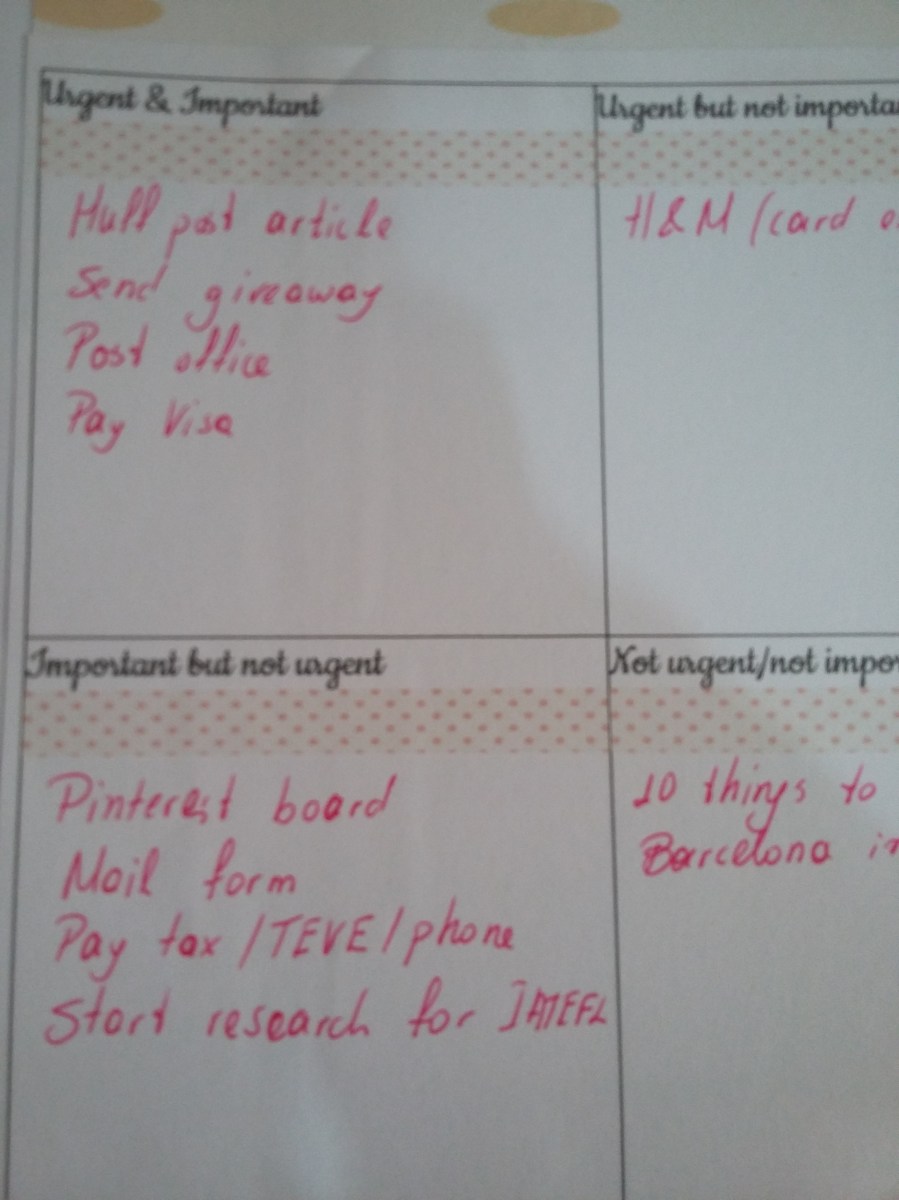 Urgent & Important
Huff post article
Send giveaway
Post office
Pay Visa
Urgent but not importa
H&M (card
Important but not urgent
Pinterest board
Mail form
Pay tax /TEVE/phone
Start research for IATEFL
Not urgent/not impor
10 things to
Barcelona in